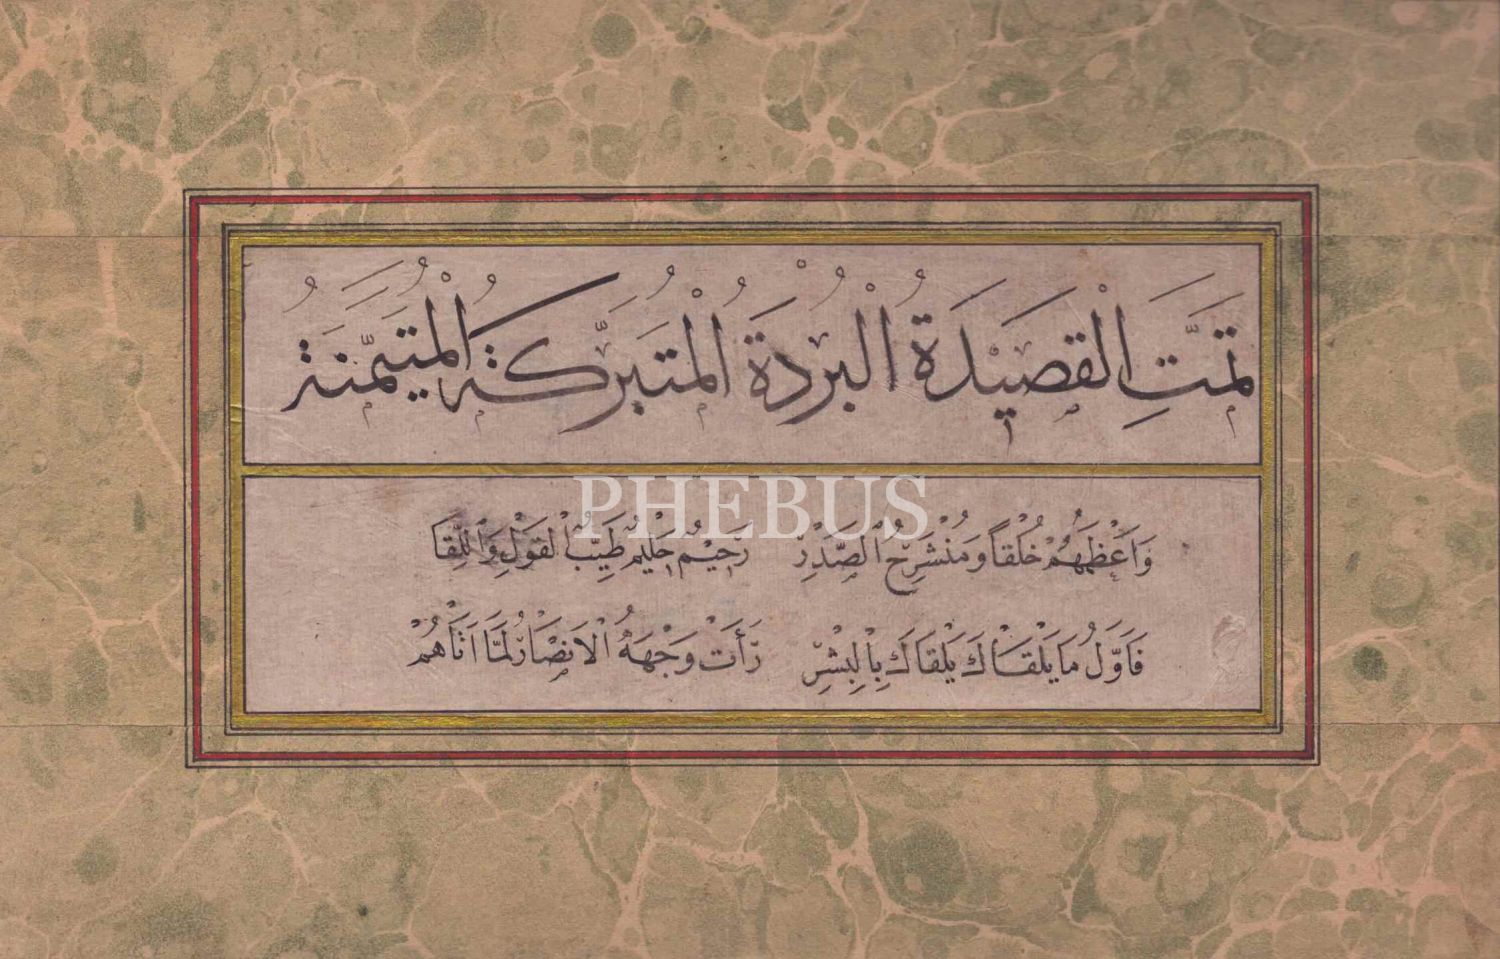 تَمَّتِ الْقَصِيْدَةُ الْبُرْدَةُ الْمُتَبَرِّكَةُ الْمُتَيَمِّنَةُ
PHEBUS
وَاَعْظَمُهُمْ خُلْقاً وَمُنْشَرِحُ الصَّدْرِ رَحِيْمٌ حَلِيْمٌ طَيِّبُ الْقَوْلِ وَاللِّقَا
فَاَوَّلُ مَا يَلْقَاكَ يَلْقَاكَ بِالْبِشْرِ رَأَتْ وَجْهَهُ الْاَنْصَارُ لَمَّا اَتَاهُمْ